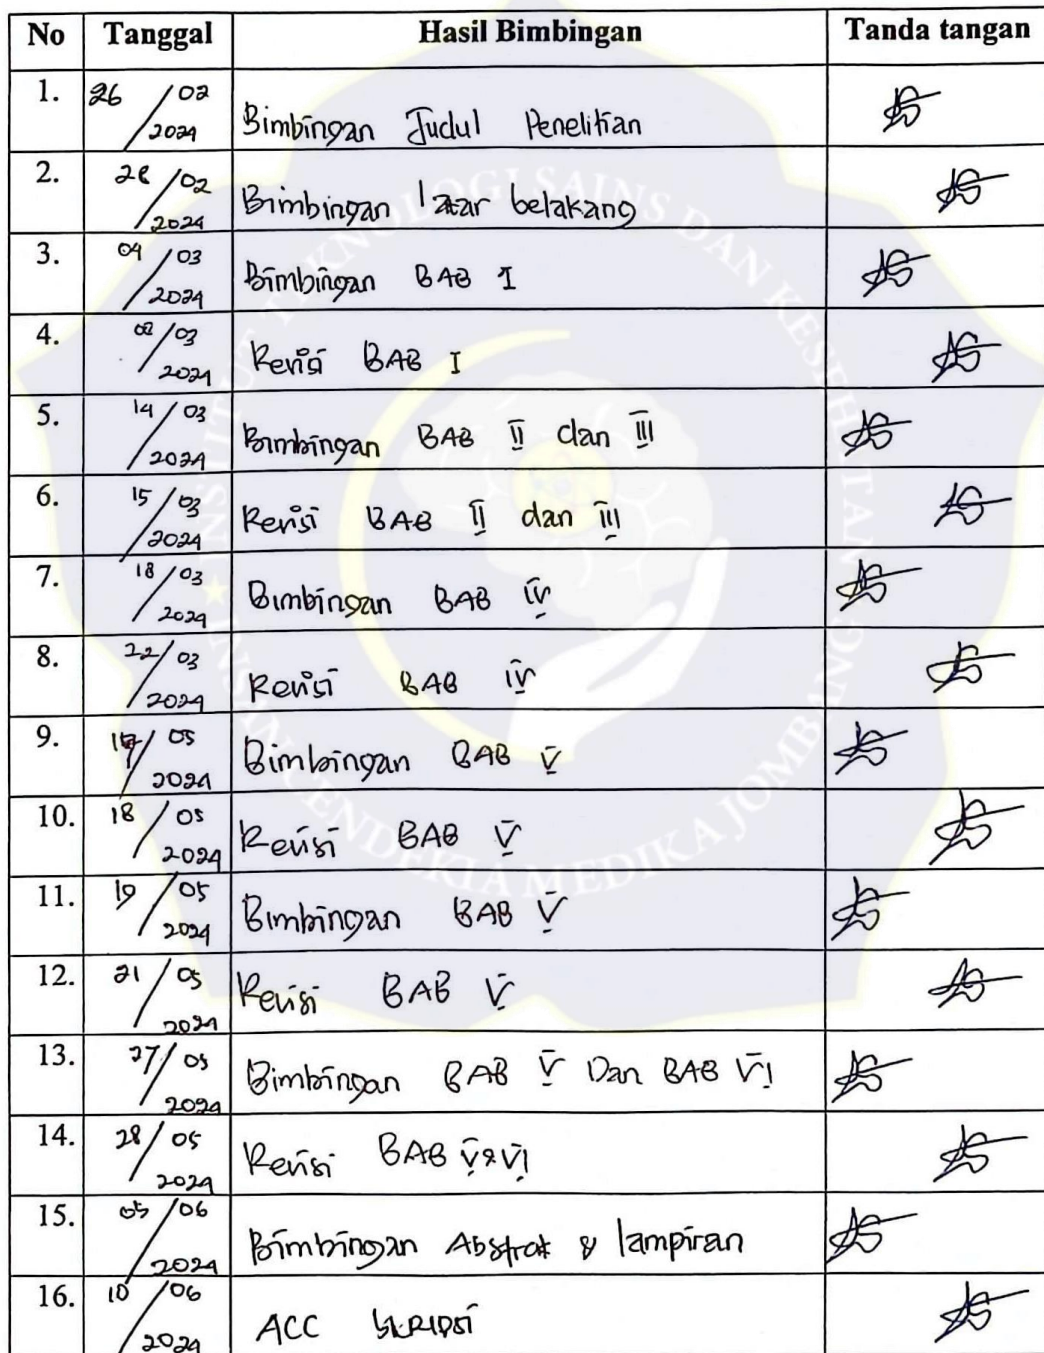 No Tanggal Hasil Bimbingan Tanda tangan
1. 26/02 2024 Bimbingan Judul Penelitian
2. 28/02 2024 Bimbingan latar belakang
3. 04/03 2024 Bimbingan BAB I
4. /03 2024 Revisi BAB I
5. 14/03 2024 Bimbingan BAB II dan III
6. 15/03 2024 Revisi BAB II dan III
7. 18/03 2024 Bimbingan BAB IV
8. 22/03 2024 Revisi BAB IV
9. 17/05 2024 Bimbingan BAB V
10. 18/05 2024 Revisi BAB V
11. 19/05 2024 Bimbingan BAB V
12. 21/05 2024 Revisi BAB V
13. 27/05 2024 Bimbingan BAB V Dan BAB VI
14. 28/05 2024 Revisi BAB V & VI
15. 05/06 2024 Bimbingan Abstrak & lampiran
16. 10/06 2024 ACC SKRIPSI
INSTITUT TEKNOLOGI SAINS DAN KESEHATAN
INSAN CENDEKIA MEDIKA JOMBANG